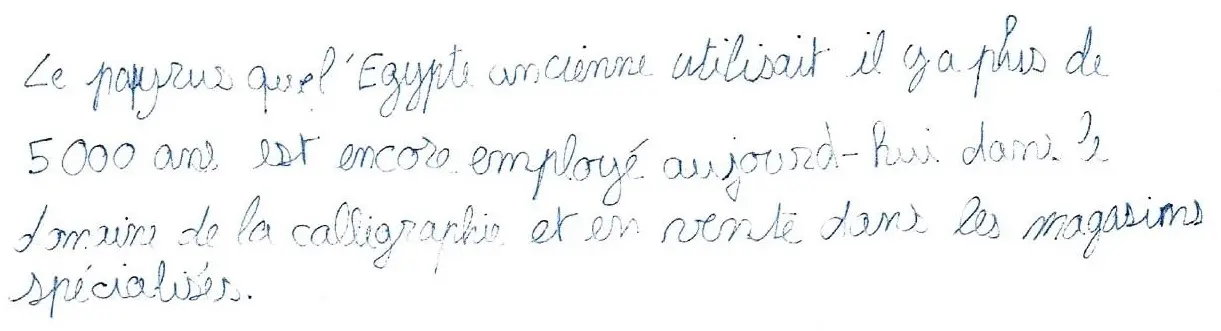 Le papyrus que l'Egypte ancienne utilisait il y a plus de
5000 ans est encore employé aujourd-hui dans le
domaine de la calligraphie et en vente dans les magasins
spécialisés.